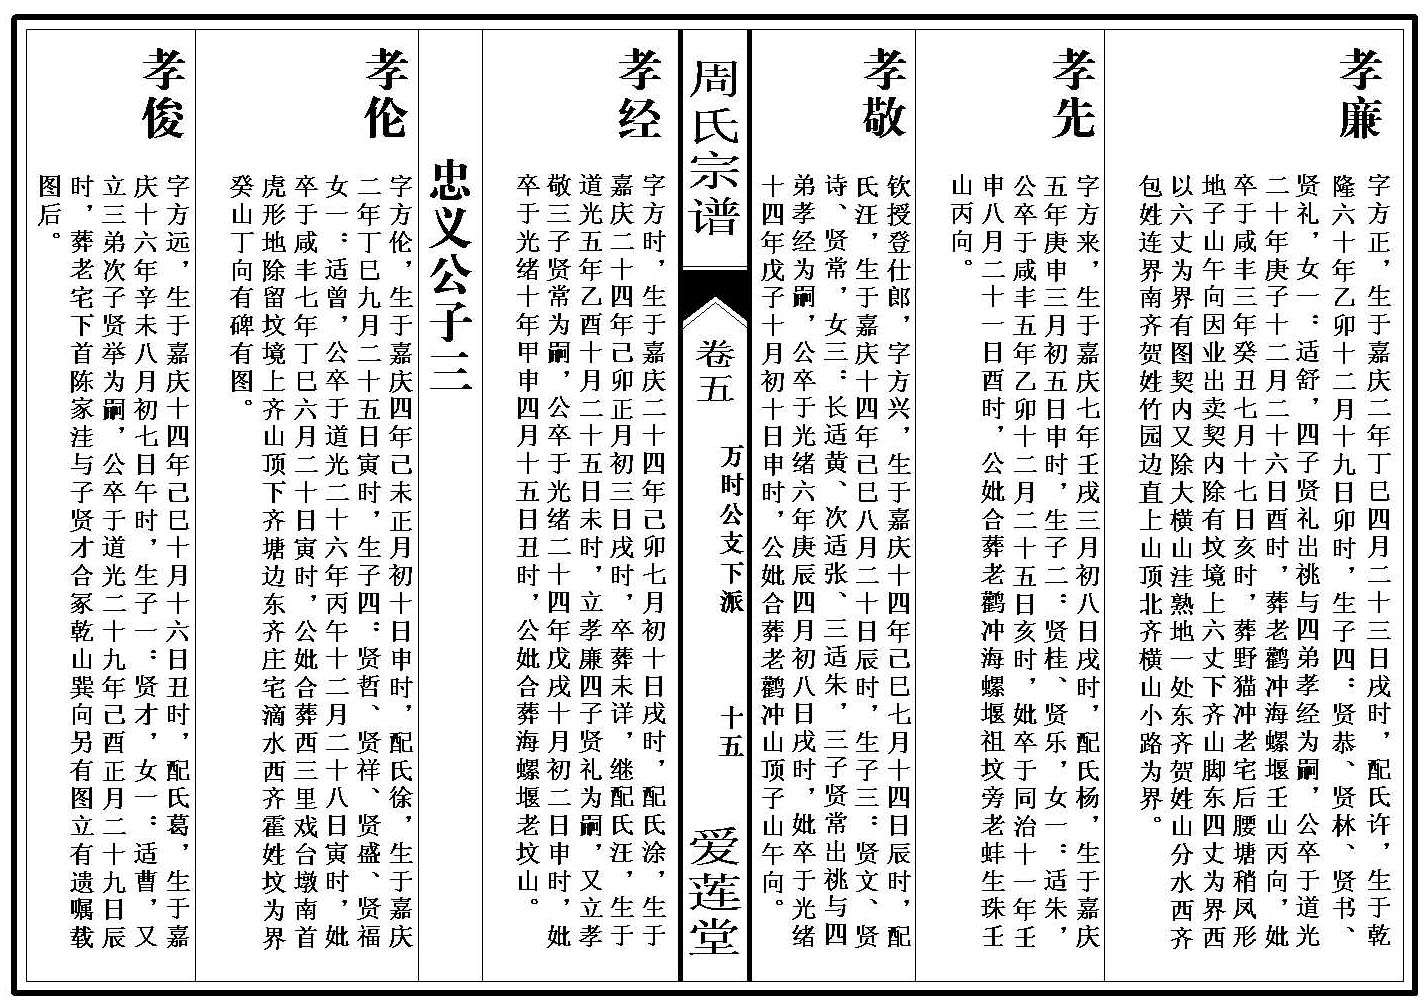 孝廉
字方正，生于嘉庆二年丁巳四月二十三日戌时，配氏许，生于乾
隆六十年乙卯十二月十九日卯时，生子四：贤恭、贤林、贤书、
贤礼，女一：适舒，四子贤礼出祧与四弟孝经为嗣，公卒于道光
二十年庚子十二月二十六日酉时，葬老鹳冲海螺堰壬山丙向，妣
卒于咸丰三年癸丑七月十七日亥时，葬野猫冲老宅后腰塘稍凤形
地子山午向因业出卖契内除有坟境上六丈下齐山脚东四丈为界西
以六丈为界有图契内又除大横山洼熟地一处东齐贺姓山分水西齐
包姓连界南齐贺姓竹园边直上山顶北齐横山小路为界。
孝先
字方来，生于嘉庆七年壬戌三月初八日戌时，配氏杨，生于嘉庆
五年庚申三月初五日申时，生子二：贤桂、贤乐，女一：适朱，
公卒于咸丰五年乙卯十二月二十五日亥时，妣卒于同治十一年壬
申八月二十一日酉时，公妣合葬老鹳冲海螺堰祖坟旁老蚌生珠壬
山丙向。
孝敬
钦授登仕郎，字方兴，生于嘉庆十四年己巳七月十四日辰时，配
氏汪，生于嘉庆十四年己巳八月二十日辰时，生子三：贤文、贤
诗、贤常，女三：长适黄、次适张、三适朱，三子贤常出祧与四
弟孝经为嗣，公卒于光绪六年庚辰四月初八日戌时，妣卒于光绪
十四年戊子十月初十日申时，公妣合葬老鹳冲山顶子山午向。
周氏宗谱
卷五
万时公支下派
十五
爱莲堂
孝经
字方时，生于嘉庆二十四年己卯七月初十日戌时，配氏涂，生于
嘉庆二十四年己卯正月初三日戌时，卒葬未详，继配氏汪，生于
道光五年乙酉十月二十五日未时，立孝廉四子贤礼为嗣，又立孝
敬三子贤常为嗣，公卒于光绪二十四年戊戌十月初二日申时，妣
卒于光绪十年甲申四月十五日丑时，公妣合葬海螺堰老坟山。
忠义公子三
孝伦
字方伦，生于嘉庆四年己未正月初十日申时，配氏徐，生于嘉庆
二年丁巳九月二十五日寅时，生子四：贤哲、贤祥、贤盛、贤福
女一：适曾，公卒于道光二十六年丙午十二月二十八日寅时，妣
卒于咸丰七年丁巳六月二十日寅时，公妣合葬西三里戏台墩南首
虎形地除留坟境上齐山顶下齐塘边东齐庄宅滴水西齐霍姓坟为界
癸山丁向有碑有图。
孝俊
字方远，生于嘉庆十四年己巳十月十六日丑时，配氏葛，生于嘉
庆十六年辛未八月初七日午时，生子一：贤才，女一：适曹，又
立三弟次子贤举为嗣，公卒于道光二十九年己酉正月二十九日辰
时，葬老宅下首陈家洼与子贤才合冢乾山巽向另有图立有遗嘱载
图后。